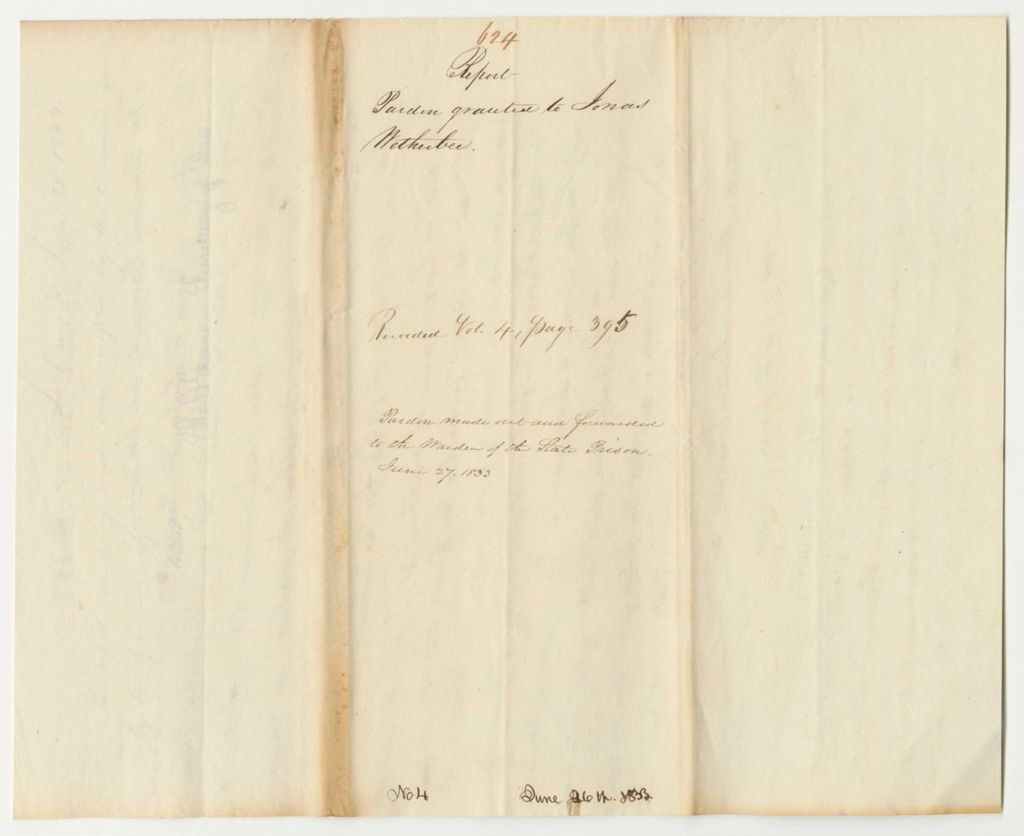 624
Report
Pardon granted to Jonas
Wetherbee.
Recorded Vol. 4, page 395
Pardon made out and forwarded
to the Warden of the State Prison.
June 27. 1833
No. 4
June 26th. 1833.